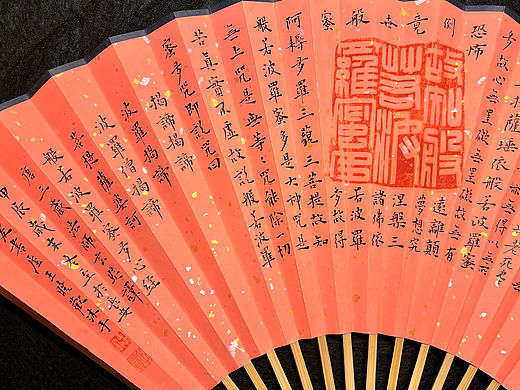 提薩埵依般若波羅蜜
多故心無罣礙無罣礙故無有
恐怖遠離顛
倒夢想究
竟涅槃三
世諸佛依
般若波羅
蜜多故得
故知般
若波
羅蜜多
阿耨多羅三藐三菩提故知
般若波羅蜜多是大神咒是
無上咒是無等〻咒能除一切
苦真實不虛故說般若波羅
蜜多咒即說咒曰
揭諦揭諦
波羅揭諦
波羅僧揭諦
菩提薩婆訶
般若波羅蜜多心經
唐三藏法師玄奘譯
甲辰